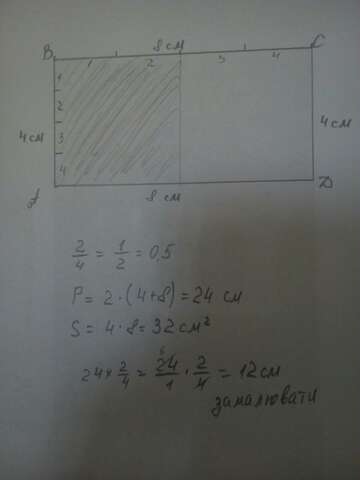 B 8 см C
1 2 3 4
1
2
3
4
4 см 4 см
A 8 см D
2/4 = 1/2 = 0,5
P = 2 · (4+8) = 24 см
S = 4 · 8 = 32 см²
24 × 2/4 = 24/1 · 2/4 = 12 см
замалювати